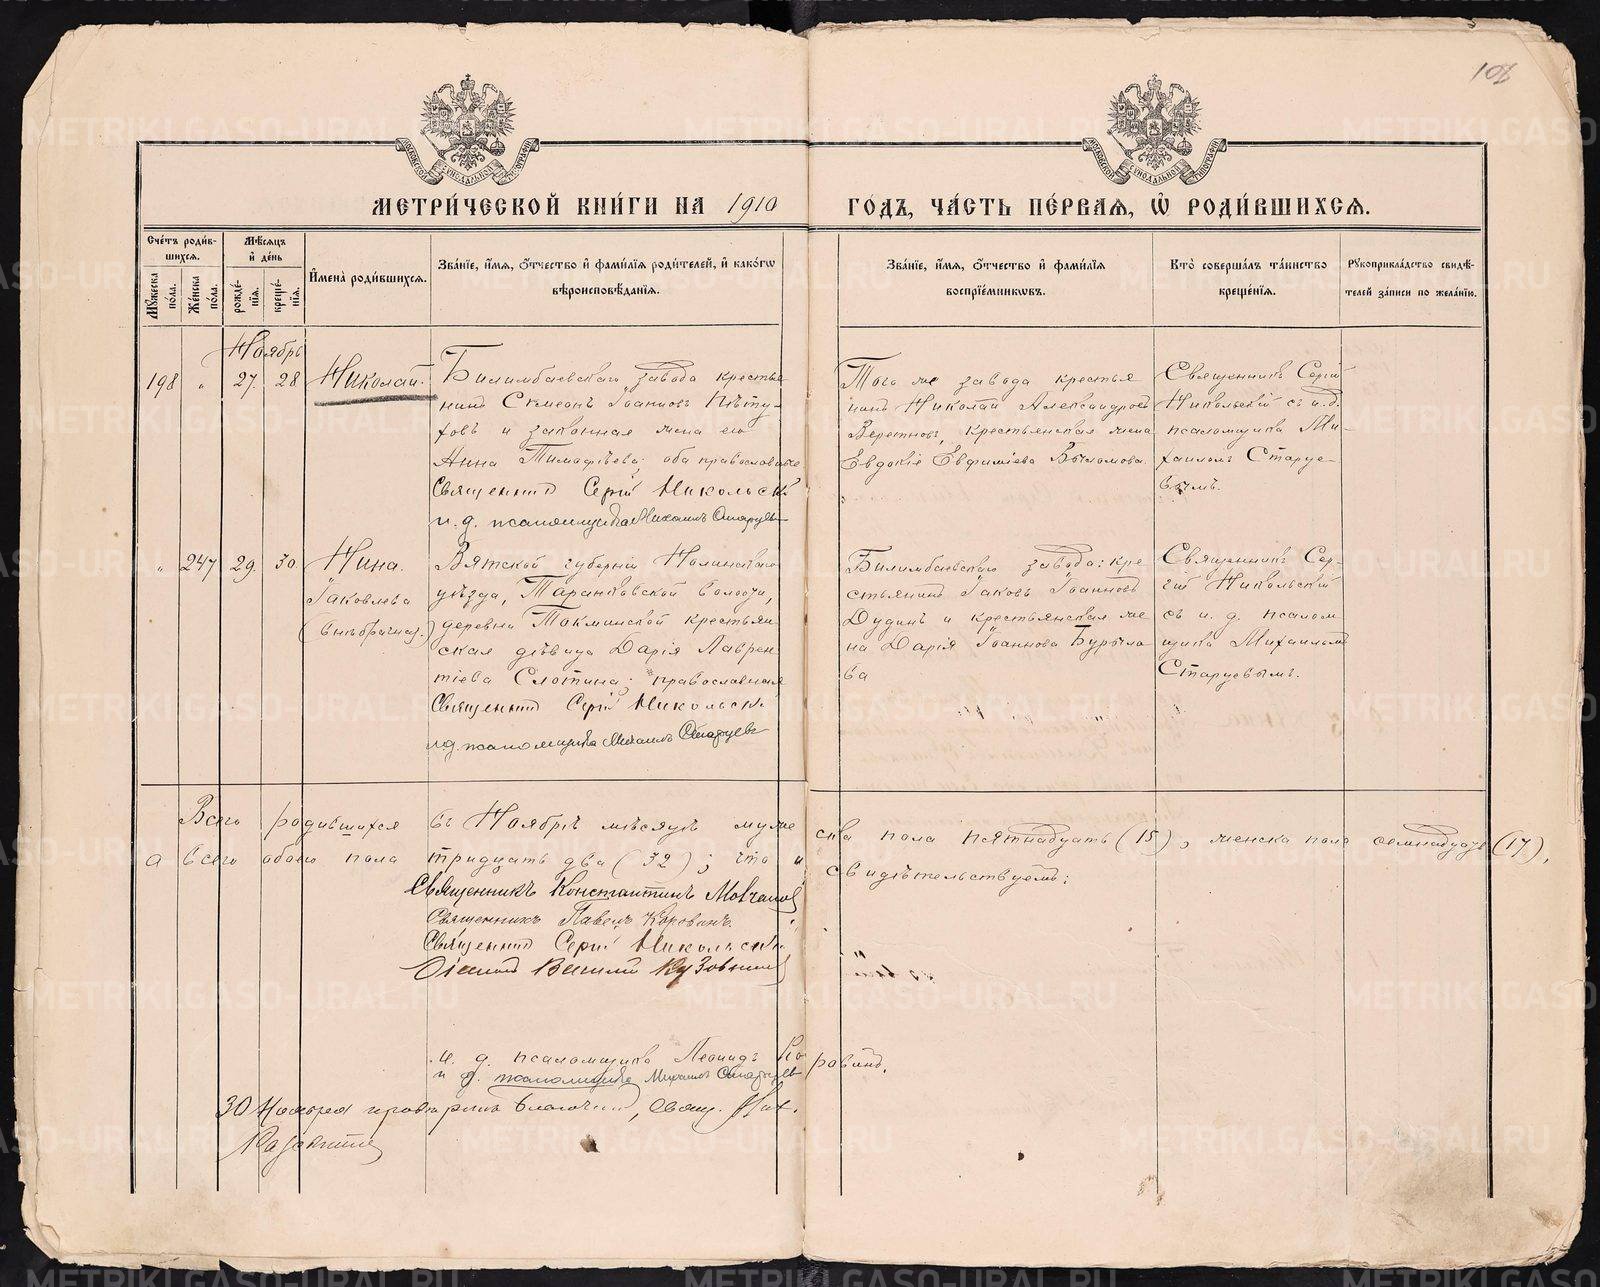 108
МОСКОВСКОЙ СѴНОДАЛЬНОЙ ТИПОГРАФІИ
МОСКОВСКОЙ СѴНОДАЛЬНОЙ ТИПОГРАФІИ
МЕТРИ́ЧЕСКОЙ КНИ́ГИ НА 1910
ГОДЪ, ЧА́СТЬ ПЕ́РВАЯ, Ѡ РОДИ́ВШИХСЯ.
Сче́тъ роди́в-
шихся.
Мꙋ́жеска по́ла.
Же́нска по́ла.
Мѣ́сяцъ
и҆ де́нь
рожде́-
нїя.
креще́-
нїя.
И҆мена̀ роди́вшихся.
Зва́нїе, и҆́мя, ѻ҆́тчество и҆ фами́лїя роди́телей, и҆ како́гѡ
вѣроисповѣ́данїя.
Зва́нїе, и҆́мя, ѻ҆́тчество и҆ фами́лїя
воспрїе́мникѡвъ.
Кто̀ соверша́лъ та́инство
креще́нїя.
Рꙋкоприкла́дство свидѣ́-
телей за́писи по жела́нїю.
Ноябрь
198 " 27. 28 Николай.
Билимбаевскаго завода крестья
нинъ Симеонъ Іоанновъ Пѣту-
ховъ и законная жена его
Анна Тимофѣева; оба православные
Священникъ Сергій Никольскій
и. д. псаломщика Михаилъ Старцевъ
Того же завода крестья
нинъ Николай Александровъ
Веретновъ, крестьянская жена
Евдокія Евфиміева
Священникъ Сергій
Никольскій съ и. д.
псаломщика Ми-
хаиломъ Старце-
вымъ.
" 247 29. 30. Нина.
Іаковлева
(внѣбрачная.)
Вятской губерніи Нолинскаго
уѣзда, Таранковской волости,
деревни Токминской крестьян
ская дѣвица Дарія Лаврен
тіева Слотина; православная
Священникъ Сергій Никольскій
и д. псаломщика Михаилъ Старцевъ
Билимбаевскаго завода: кре
стьянинъ Іаковъ Іоанновъ
Дудинъ и крестьянская же
на Дарія Іоаннова Бурыло
ва
Священникъ Сер-
гій Никольскій
съ и. д. псалом
щика Михаиломъ
Старцевымъ.
Всего родившихся въ Ноябрѣ мѣсяцѣ муже ска пола пятнадцать (15), женска пола семнадцать (17),
а всего обоего пола тридцать два (32); что и свидѣтельствуемъ:
Священникъ Константинъ Мовчанов
Священникъ Павелъ Коровинъ.
Священникъ Сергій Никольскій
Діаконъ Василій Кузовниковъ
И. д. псаломщика Леонидъ Ко ровинъ.
и д. псаломщика Михаилъ Старцевъ
30 Ноября провѣрилъ благочинный, Свящ. Ник.